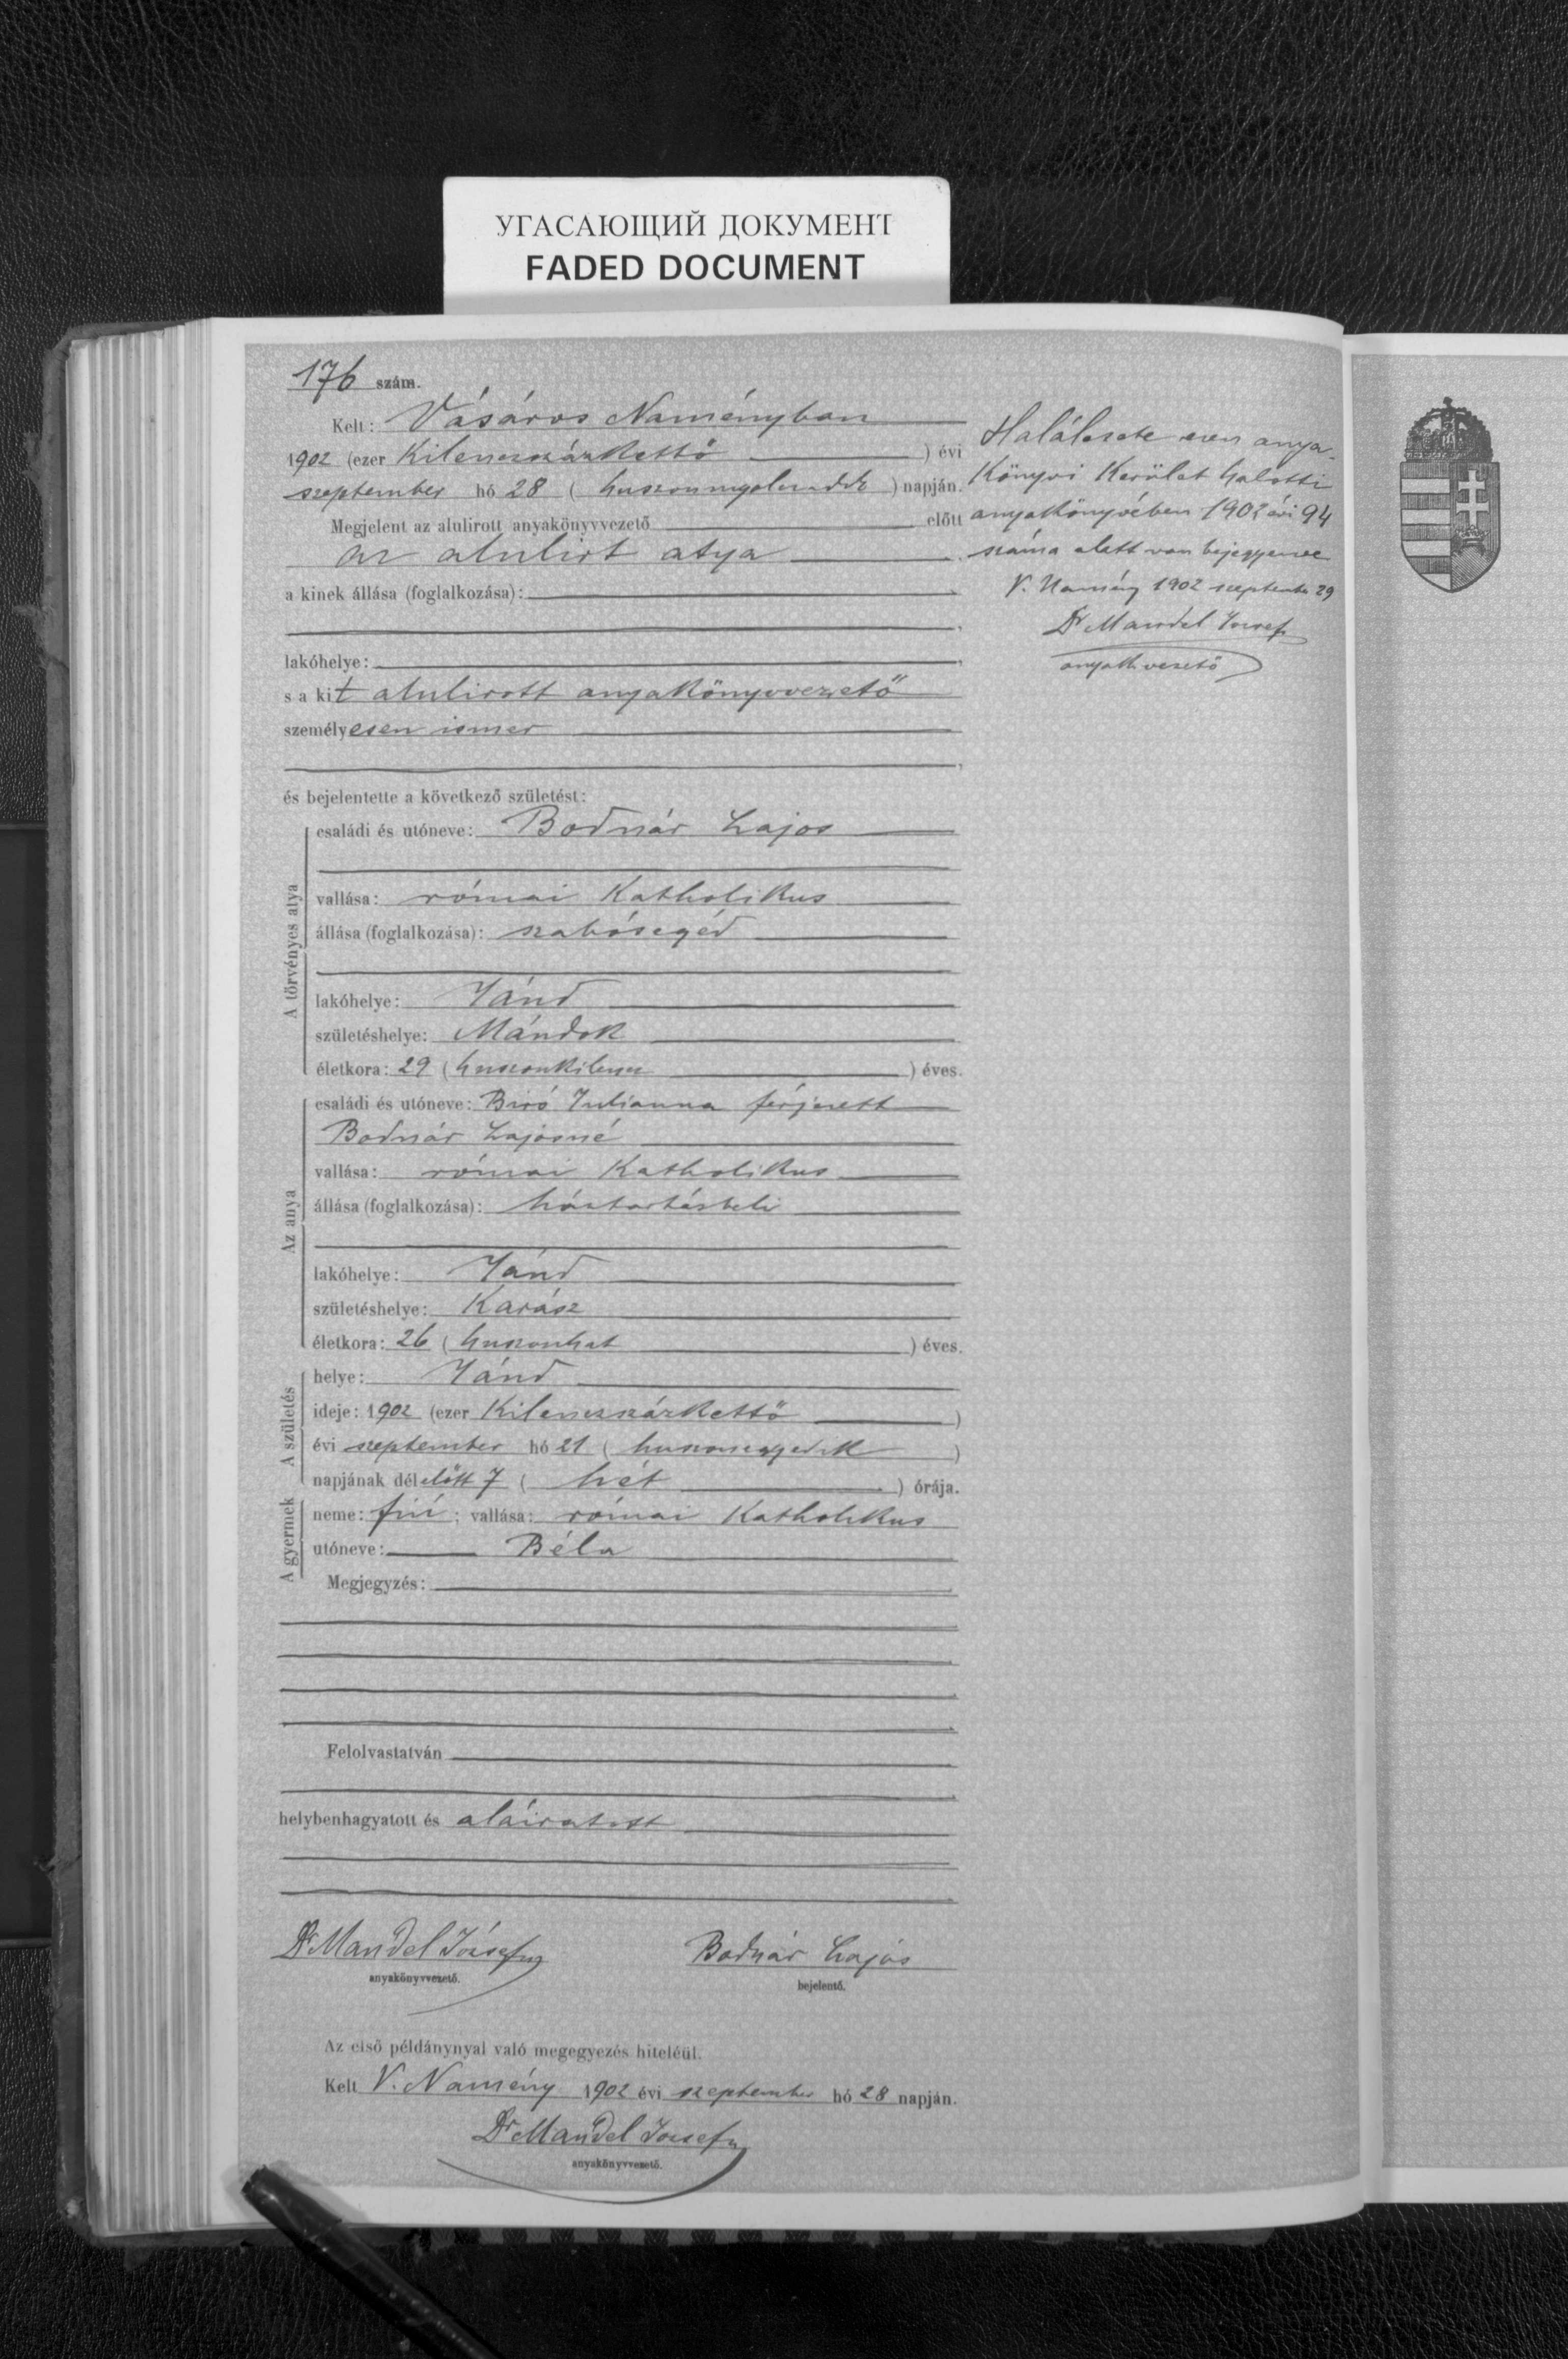 УГАСАЮЩИЙ ДОКУМЕНТ
FADED DOCUMENT
176 szám.
Kelt: Vásáros Naményban
1902 (ezer Kilenczszázkettő ) évi
szeptember hó 28 ( huszonnyolczadik ) napján.
Megjelent az alulirott anyakönyvvezető előtt
az alulirt atya
a kinek állása (foglalkozása):
lakóhelye:
s a kit alulirott anyakönyvvezető
személyesen ismer
és bejelentette a következő születést:
A törvényes atya
családi és utóneve: Bodnár Lajos
vallása: római Katholikus
állása (foglalkozása): szabósegéd
lakóhelye: Jánd
születéshelye: Mándok
életkora: 29 (huszonkilencz ) éves.
Az anya
családi és utóneve: Biró Julianna férjezett
Bodnár Lajosné
vallása: római Katholikus
állása (foglalkozása): háztartásbeli
lakóhelye: Jánd
születéshelye: Karász
életkora: 26 (huszonhat ) éves.
A születés
helye: Jánd
ideje: 1902 (ezer Kilenczszázkettő )
évi szeptember hó 21 ( huszonegyedik )
napjának délelőtt 7 ( hét ) órája.
A gyermek
neme: fiú; vallása: római Katholikus
utóneve: Béla
Megjegyzés:
Felolvastatván
helybenhagyatott és aláiratott
Dr Mandel József
anyakönyvvezető.
Bodnár Lajos
bejelentő.
Az első példánynyal való megegyezés hiteléül.
Kelt V. Namény 1902 évi szeptember hó 28 napján.
Dr Mandel József
anyakönyvvezető.
Halálesete ezen anya-
könyvi Kerület halotti
anyakönyvében 1902 évi 94
száma alatt van bejegyezve
V. Namény 1902 szeptember 29
Dr Mandel József
anyakvezető